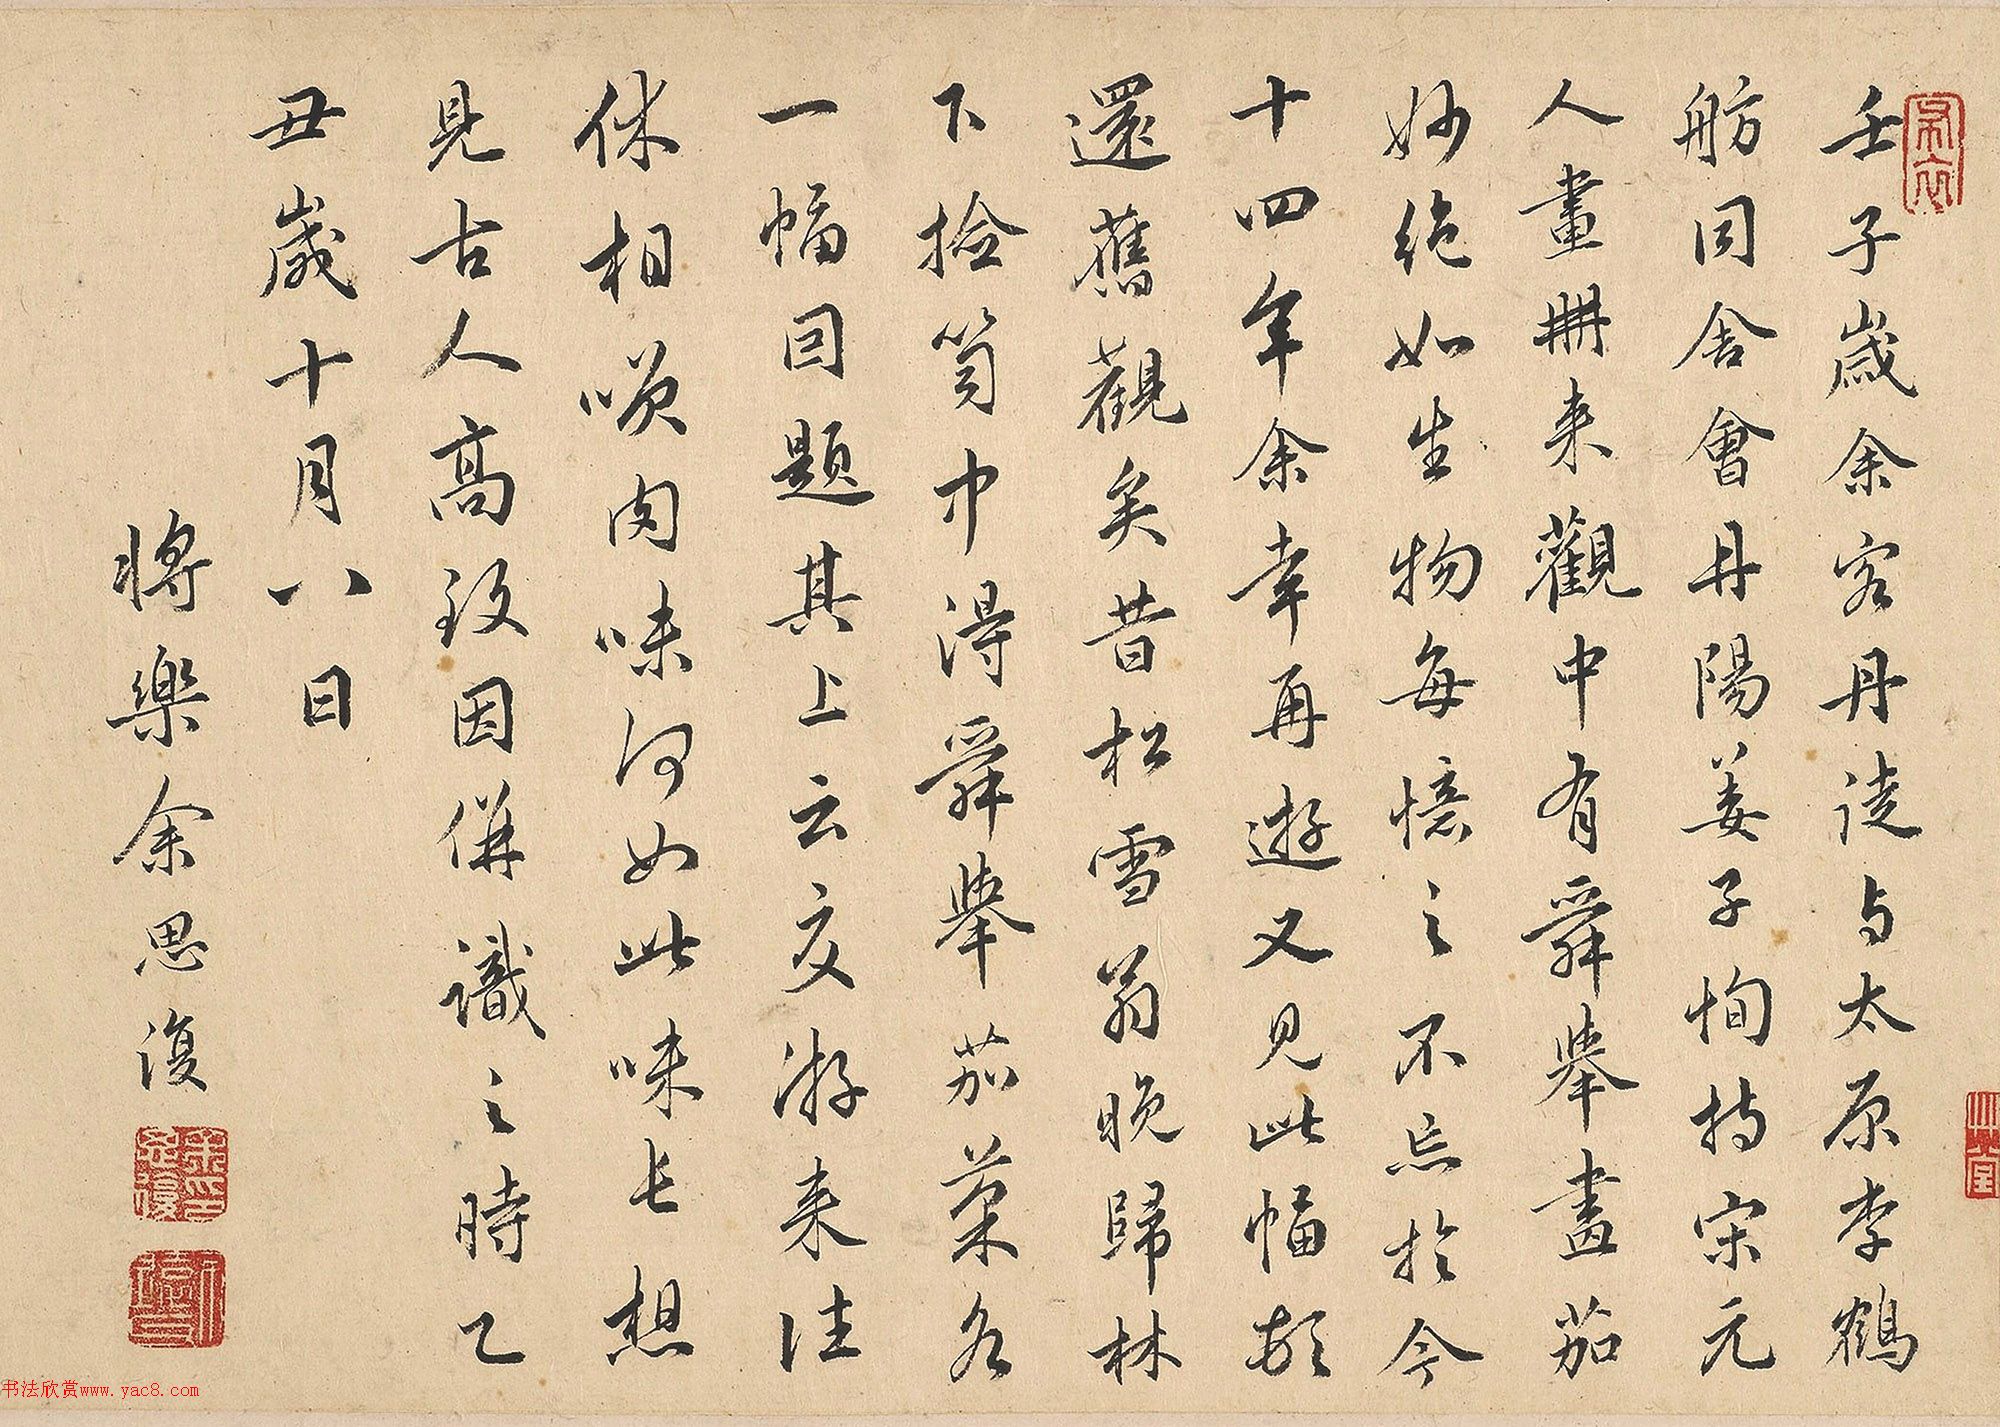 壬子歲余客丹徒与太原李鶴
舫同舍會丹陽姜子恂持宋元
人畫冊来觀中有舜舉畫茄
妙絶如生物每憶之不忘於今
十四年余幸再遊又見此幅頓
還舊觀矣昔松雪翁晚歸林
下撿笥中得舜舉茄菜各
一幅因題其上云交游来往
休相唉肉味何如此味長想
見古人高致因備識之時乙
丑歲十月八日
將樂余思復
书法欣赏www.yac8.com